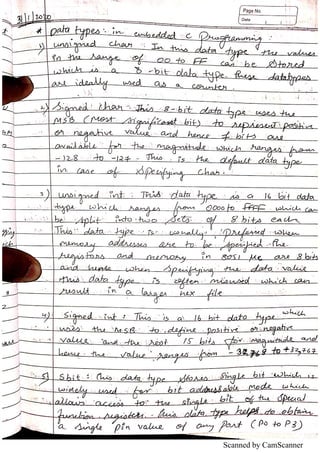 Page No.
Date
21/1/2020
* Data types: in embedded C Programming:
1) unsigned char: In this data type the values
in the range of 00 to FF can be stored
which is a 8-bit data type. These datatypes
are ideally used as a counter.
2) Signed char: This 8-bit data type uses the
MSB (Most significant bit) to represent positive
or negative value and hence 7 bits are
available for the magnitude which ranges from
-128 to -127. This is the default data type
in case of specifying char.
3) unsigned int: This data type is a 16 bit data
type which ranges from 0000 to FFFF which can
be split into two sets of 8 bits each.
This data type is usually preferred when
memory addresses are to be specified. The
registors and memory in 8051 μc are 8 bits
and hence when specifying the data value
this data type is often misused which can
result in a larger hex file
4) Signed int: This is a 16 bit data type which
uses the MSB to define positive or negative
value and the rest 15 bits for magnitude and
hence the value ranges from -32,768 to +32,767
5) Sbit: This data type stores single bit which is
widely used for bit addressable mode which
allows access to the single bit of the special
function registers. This data type helps to obtain
a single pin value of any port (P0 to P3)
Scanned by CamScanner